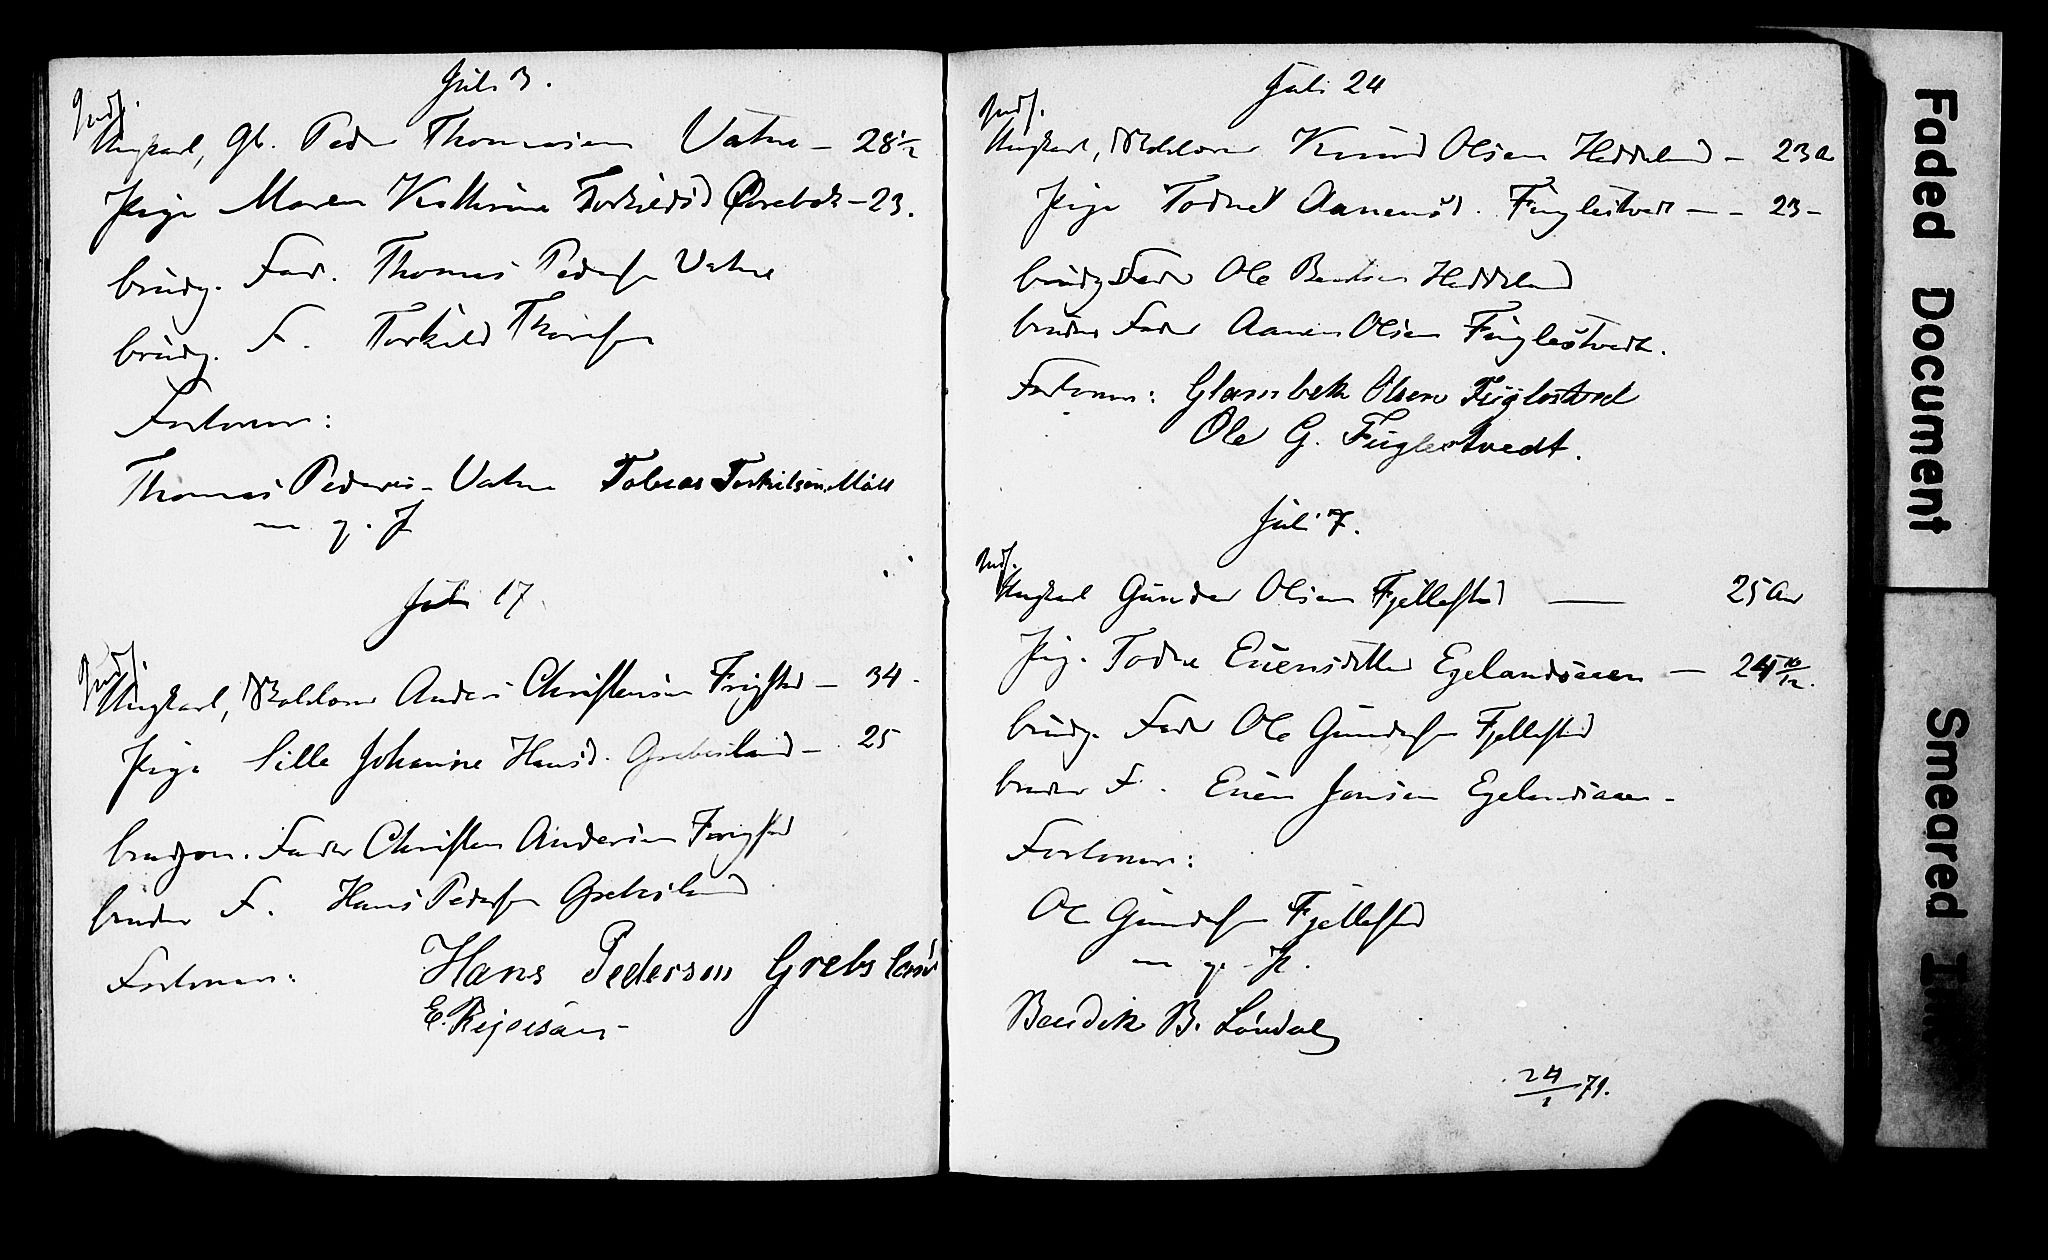 Juli 3.
Indf.
Ungkarl, Gb. Peder Thomasen Vatne – 28½
Pige Maren Kathrine Torkildsd Øvrebøk – 23.
brudg. Fad. Thomas Pedersen Vatne
brudg. F. Torkild Thorsen
Forlover:
Thomas Pedersen Vatne Tobias Torkilsen Møll
m. p. P
Juli 17
Indf.
Ungkarl, Anders Christensen Frigstad – 34.
Pige Sille Johanne Hansd. Grebesland – 25
brudgom. Fader Christen Andersen Frigstad
bruden F. Hans Pedersen Grebsland
Forlover: Hans Pedersen Grebsland
E. Reiersen
Juli 24
Indf.
Ungkarl, Knud Olsen Heddeland – 23 a
Pige Todne Aanensd. Fuglestvedt – – 23 –
brudg Fader Ole Bentsen Heddeland
bruden Fader Aanen Olsen Fuglestvedt.
Forlover: Glambek Olsen Fuglestved
Ole G. Fuglestvedt.
Juli 7.
Indf.
Ungkarl Gunder Olsen Fjellestad — 25 Aar
Pig. Todne Evensdatter Egelandsaaen — 24 10/12.
brudg. Fader Ole Gundersen Fjellestad
bruden F. Even Jansen Egelandsaaen –
Forlover:
Ole Gundersen Fjellestad
m. p. P.
Bendik B. Løndal
24/1 71.
Faded Document
Smeared Ink